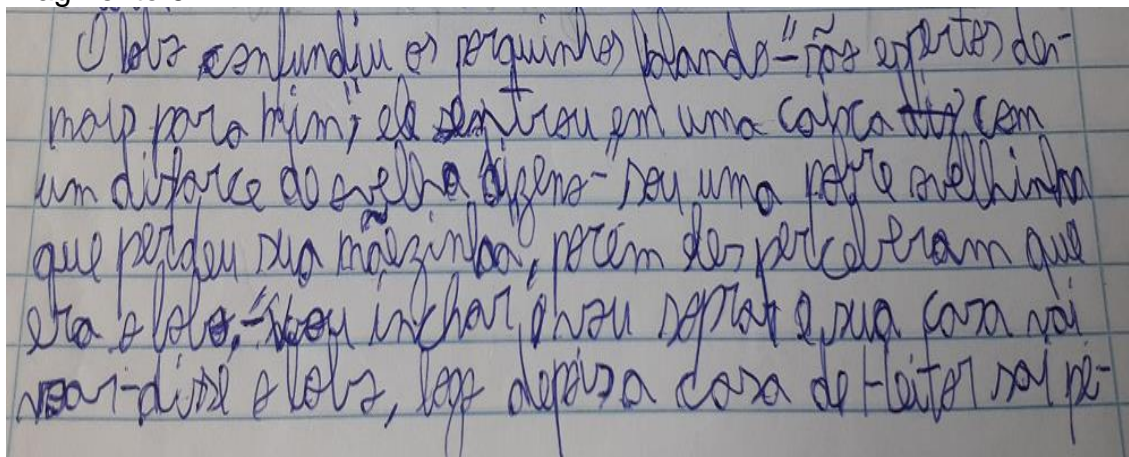 O lobo confundiu os porquinhos falando "– são espertos de-
mais para mim", ele entrou em uma caixa com
um disfarce de ovelha dizeno – "sou uma pobre ovelhinha
que perdeu sua mãezinha", porém eles perceberam que
era o lobo, – "vou inchar, vou soprar e sua casa vai
voar – disse o lobo, logo depois a casa de Heitor sai pe-